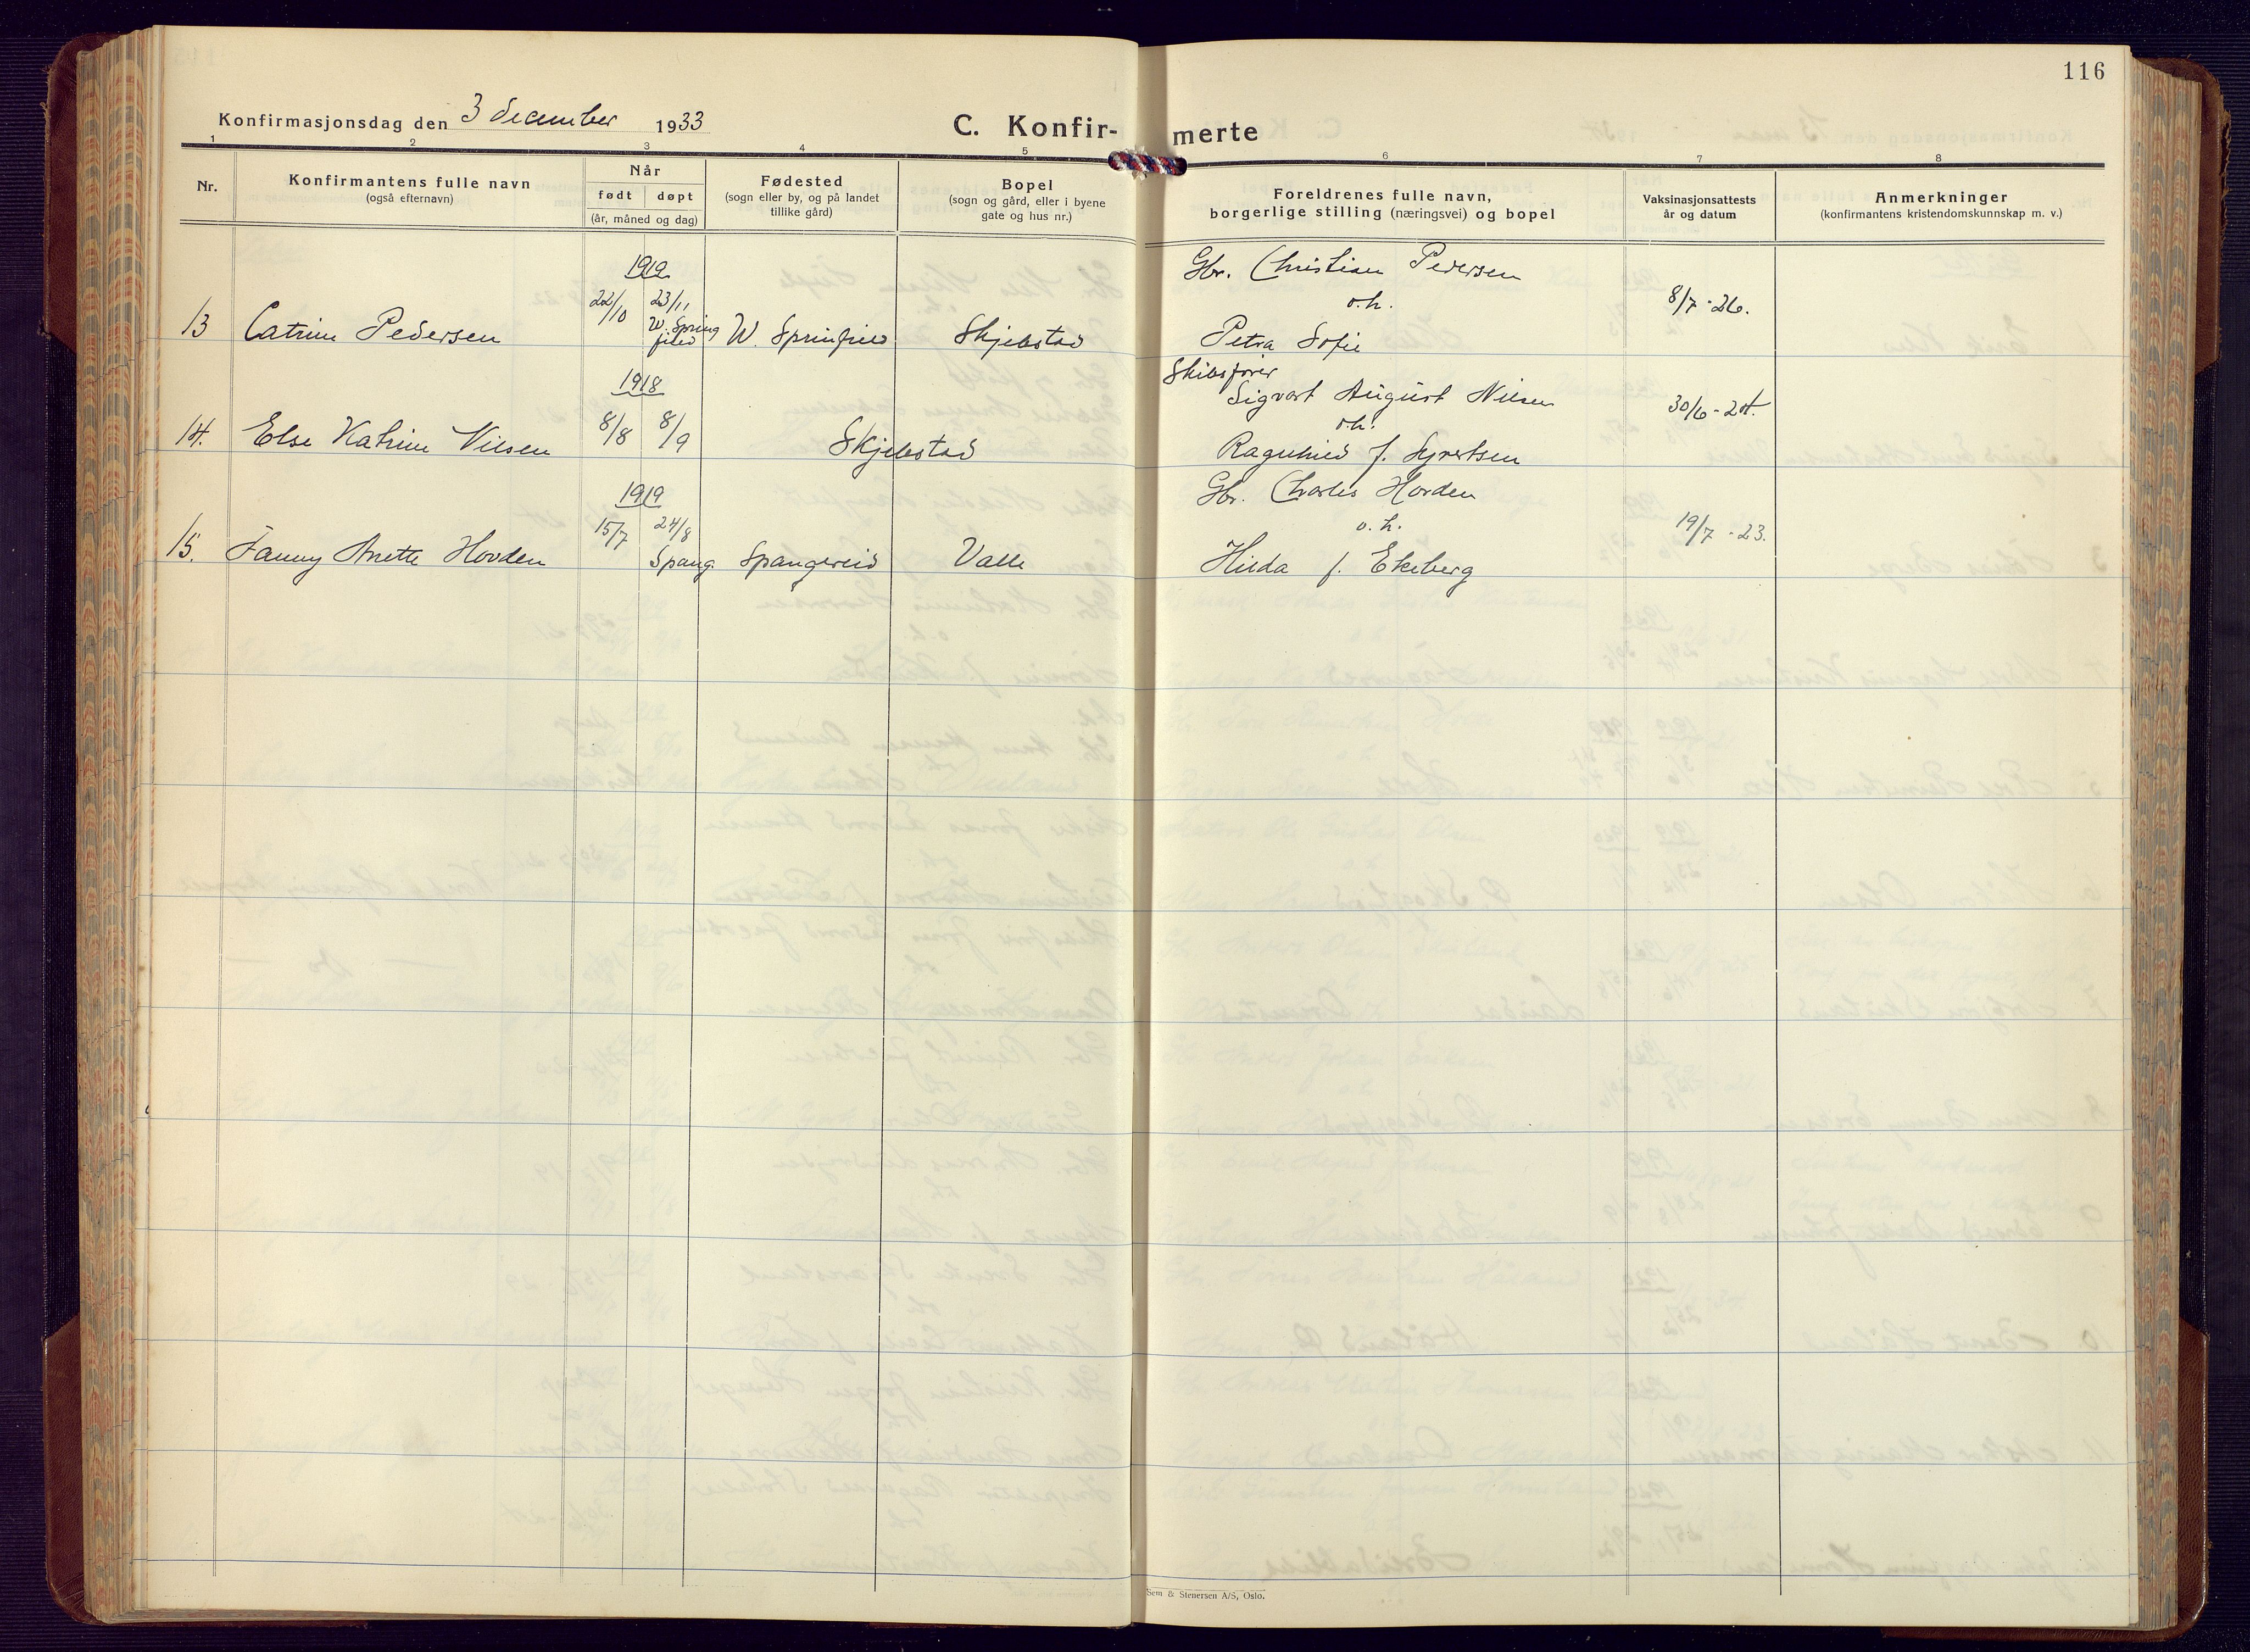 116
Konfirmasjonsdag den 3 december 1933
C. Konfir-
merte
1 2 3 4 5 6 7 8
Nr.
Konfirmantens fulle navn
(også efternavn)
Når
født døpt
(år, måned og dag)
Fødested
(sogn eller by, og på landet
tillike gård)
Bopel
(sogn og gård, eller i byene
gate og hus nr.)
Foreldrenes fulle navn,
borgerlige stilling (næringsvei) og bopel
Vaksinasjonsattests
år og datum
Anmerkninger
(konfirmantens kristendomskunnskap m. v.)
1919
22/10 23/11
W. Spring
filed
13 Catrine Pedersen W. Skjebstad
Gbr. Christian Pedersen
o. h.
Petra Sofie
8/7 - 26.
1918
14. Else Katrine Nilsen 8/8 8/9 Skjebstad
Skibsfører
Sigvart August Nilsen
o. h.
Ragnhild f. Syvertsen
30/6 - 24.
1919
15/7 24/8
15. Fanny Anette Hovden Spang. Spangereid Valle
Gbr. Charles Hovden
o. h.
Hilda f. Ekeberg
19/7 - 23.
Sem & Stenersen A/S, Oslo.